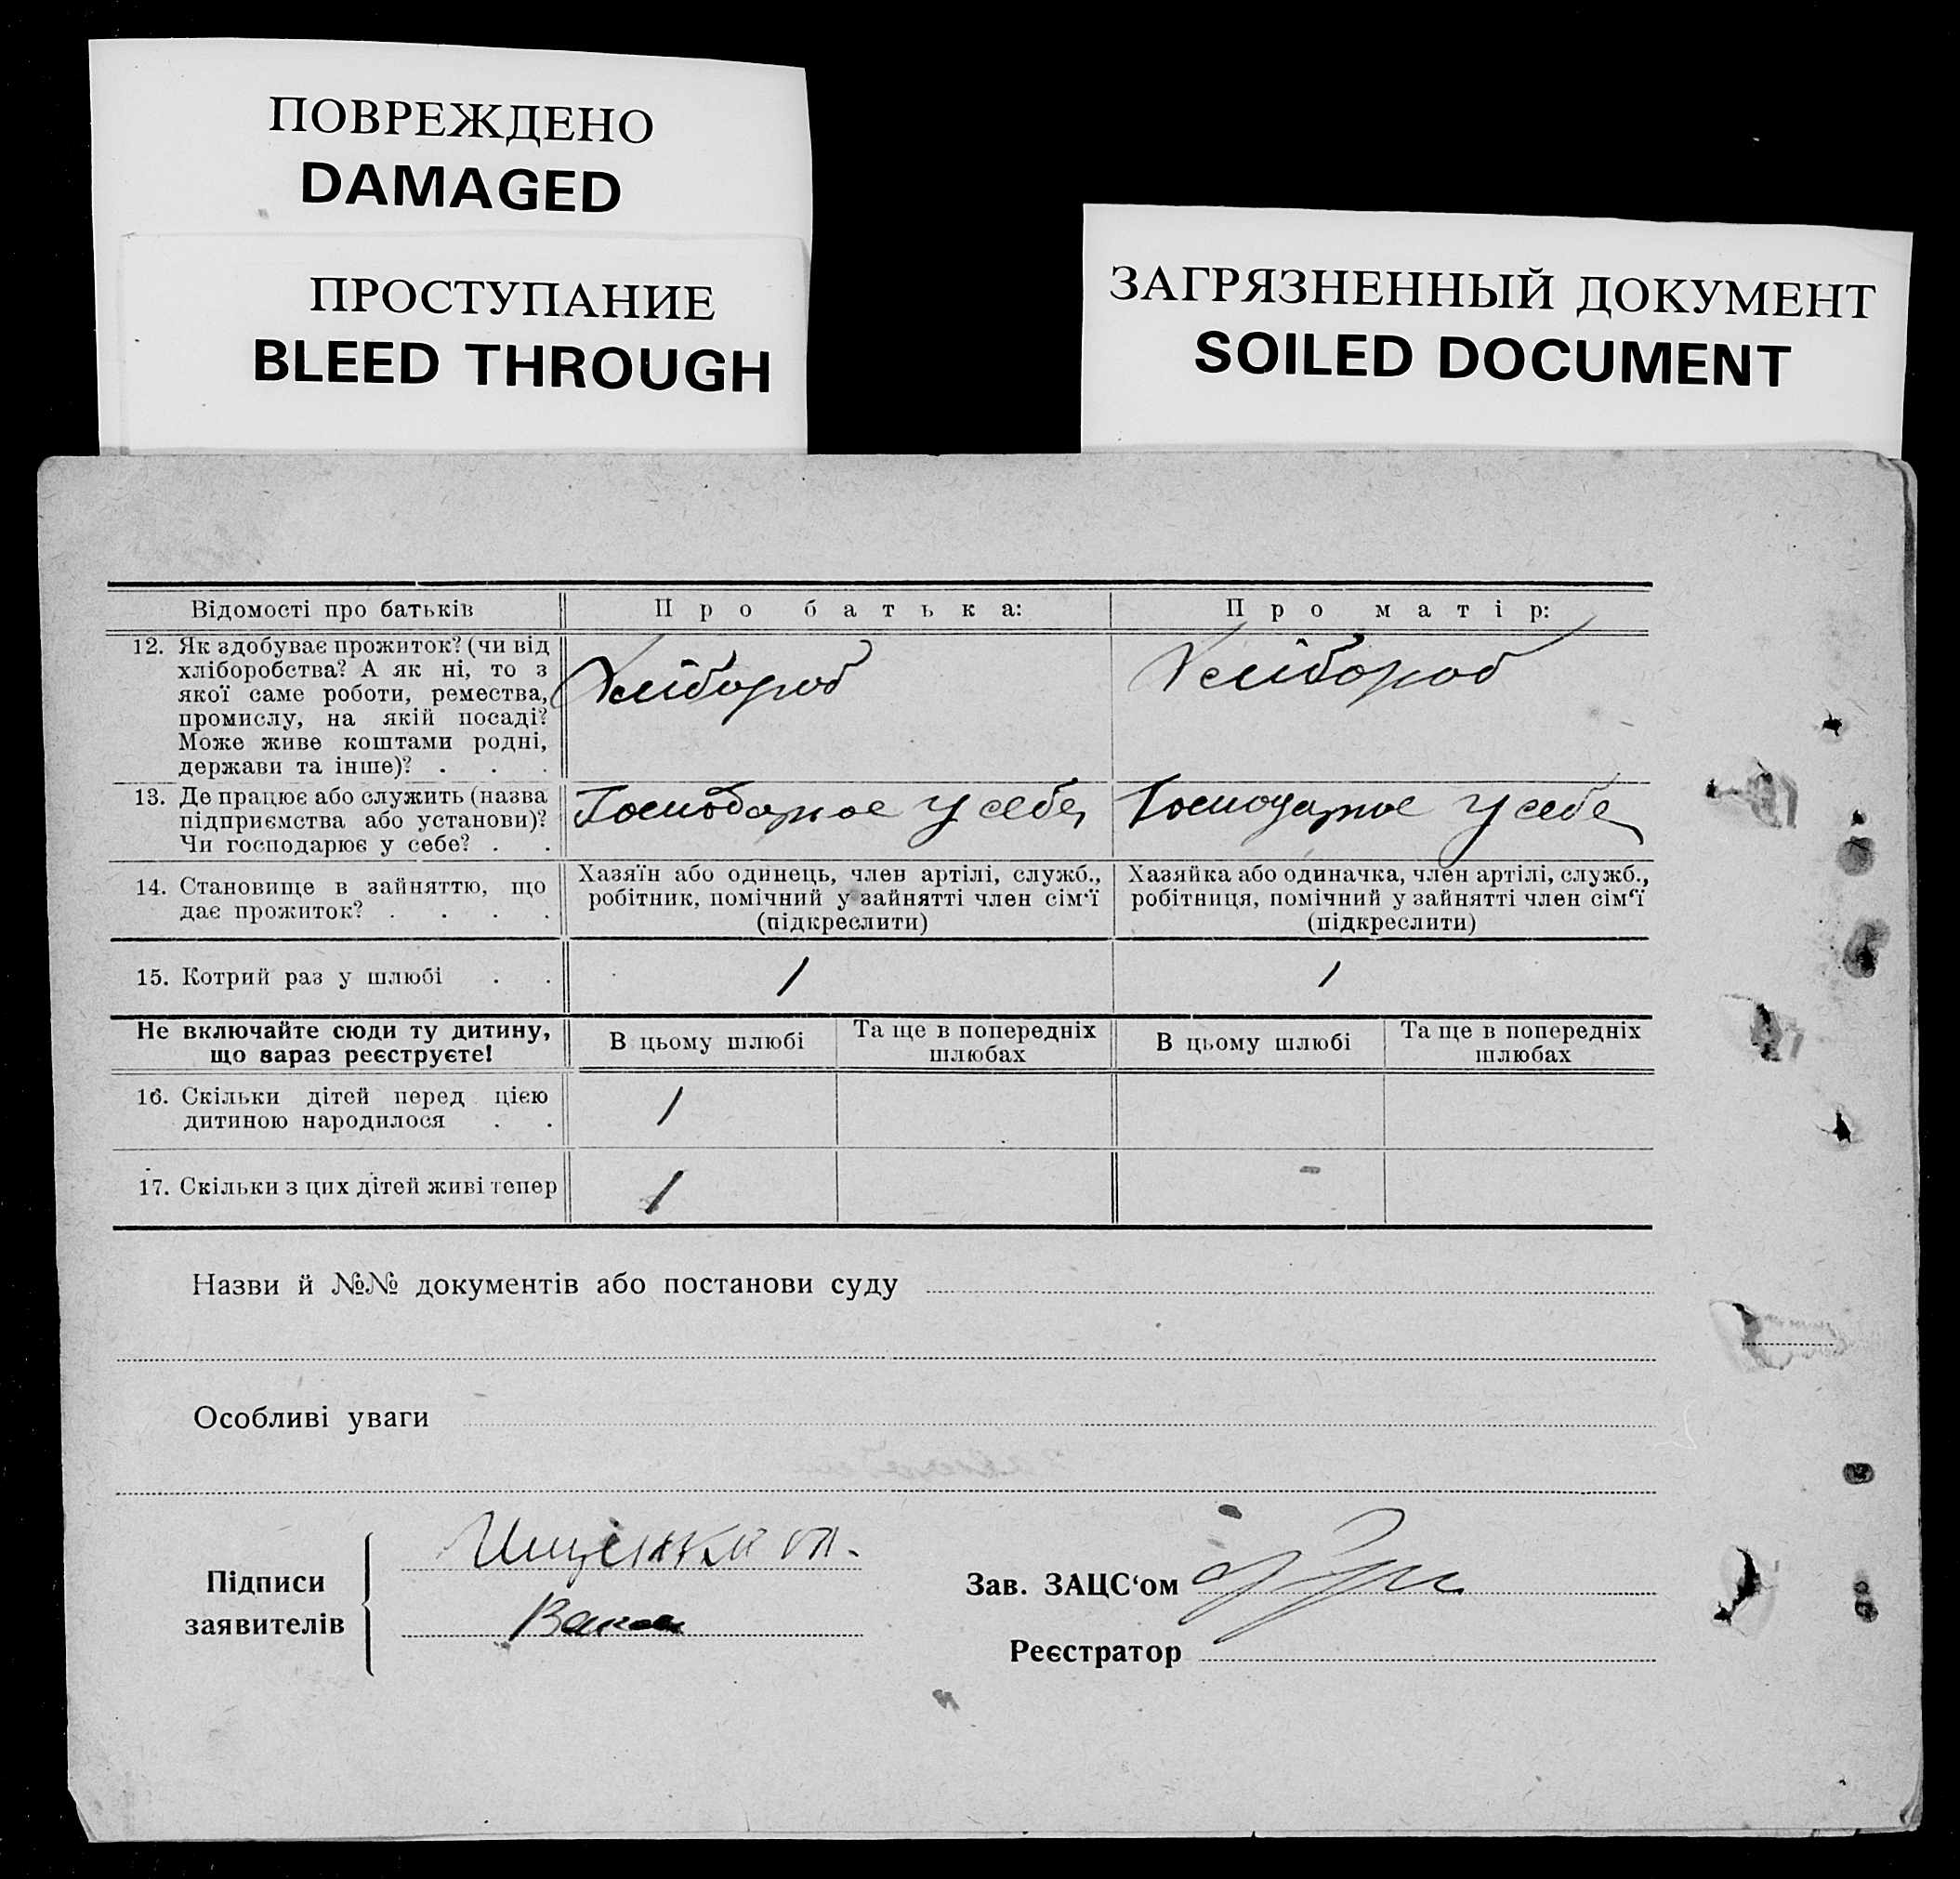 ПОВРЕЖДЕНО
DAMAGED
ПРОСТУПАНИЕ
BLEED THROUGH
ЗАГРЯЗНЕННЫЙ ДОКУМЕНТ
SOILED DOCUMENT
Відомості про батьків
Про батька:
Про матір:
12. Як здобуває прожиток? (чи від
хліборобства? А як ні, то з
якої саме роботи, ремества,
промислу, на якій посаді?
Може живе коштами родні,
держави та інше)? . . .
Хлібороб
Хлібороб
13. Де працює або служить (назва
підприємства або установи)?
Чи господарює у себе? . .
Господарює у себе
Господарює у себе
14. Становище в зайняттю, що
дає прожиток? . . . .
Хазяїн або одинець, член артілі, служб.,
робітник, помічний у зайнятті член сім'ї
(підкреслити)
Хазяйка або одиначка, член артілі, служб.,
робітниця, помічний у зайнятті член сім'ї
(підкреслити)
15. Котрий раз у шлюбі . .
1
1
Не включайте сюди ту дитину,
що вараз реєструєте!
В цьому шлюбі
Та ще в попередніх
шлюбах
В цьому шлюбі
Та ще в попередніх
шлюбах
16. Скільки дітей перед цією
дитиною народилося . .
1
17. Скільки з цих дітей живі тепер
1
-
Назви й №№ документів або постанови суду
Особливі уваги
Підписи
заявителів
Зав. ЗАЦС'ом
Реєстратор